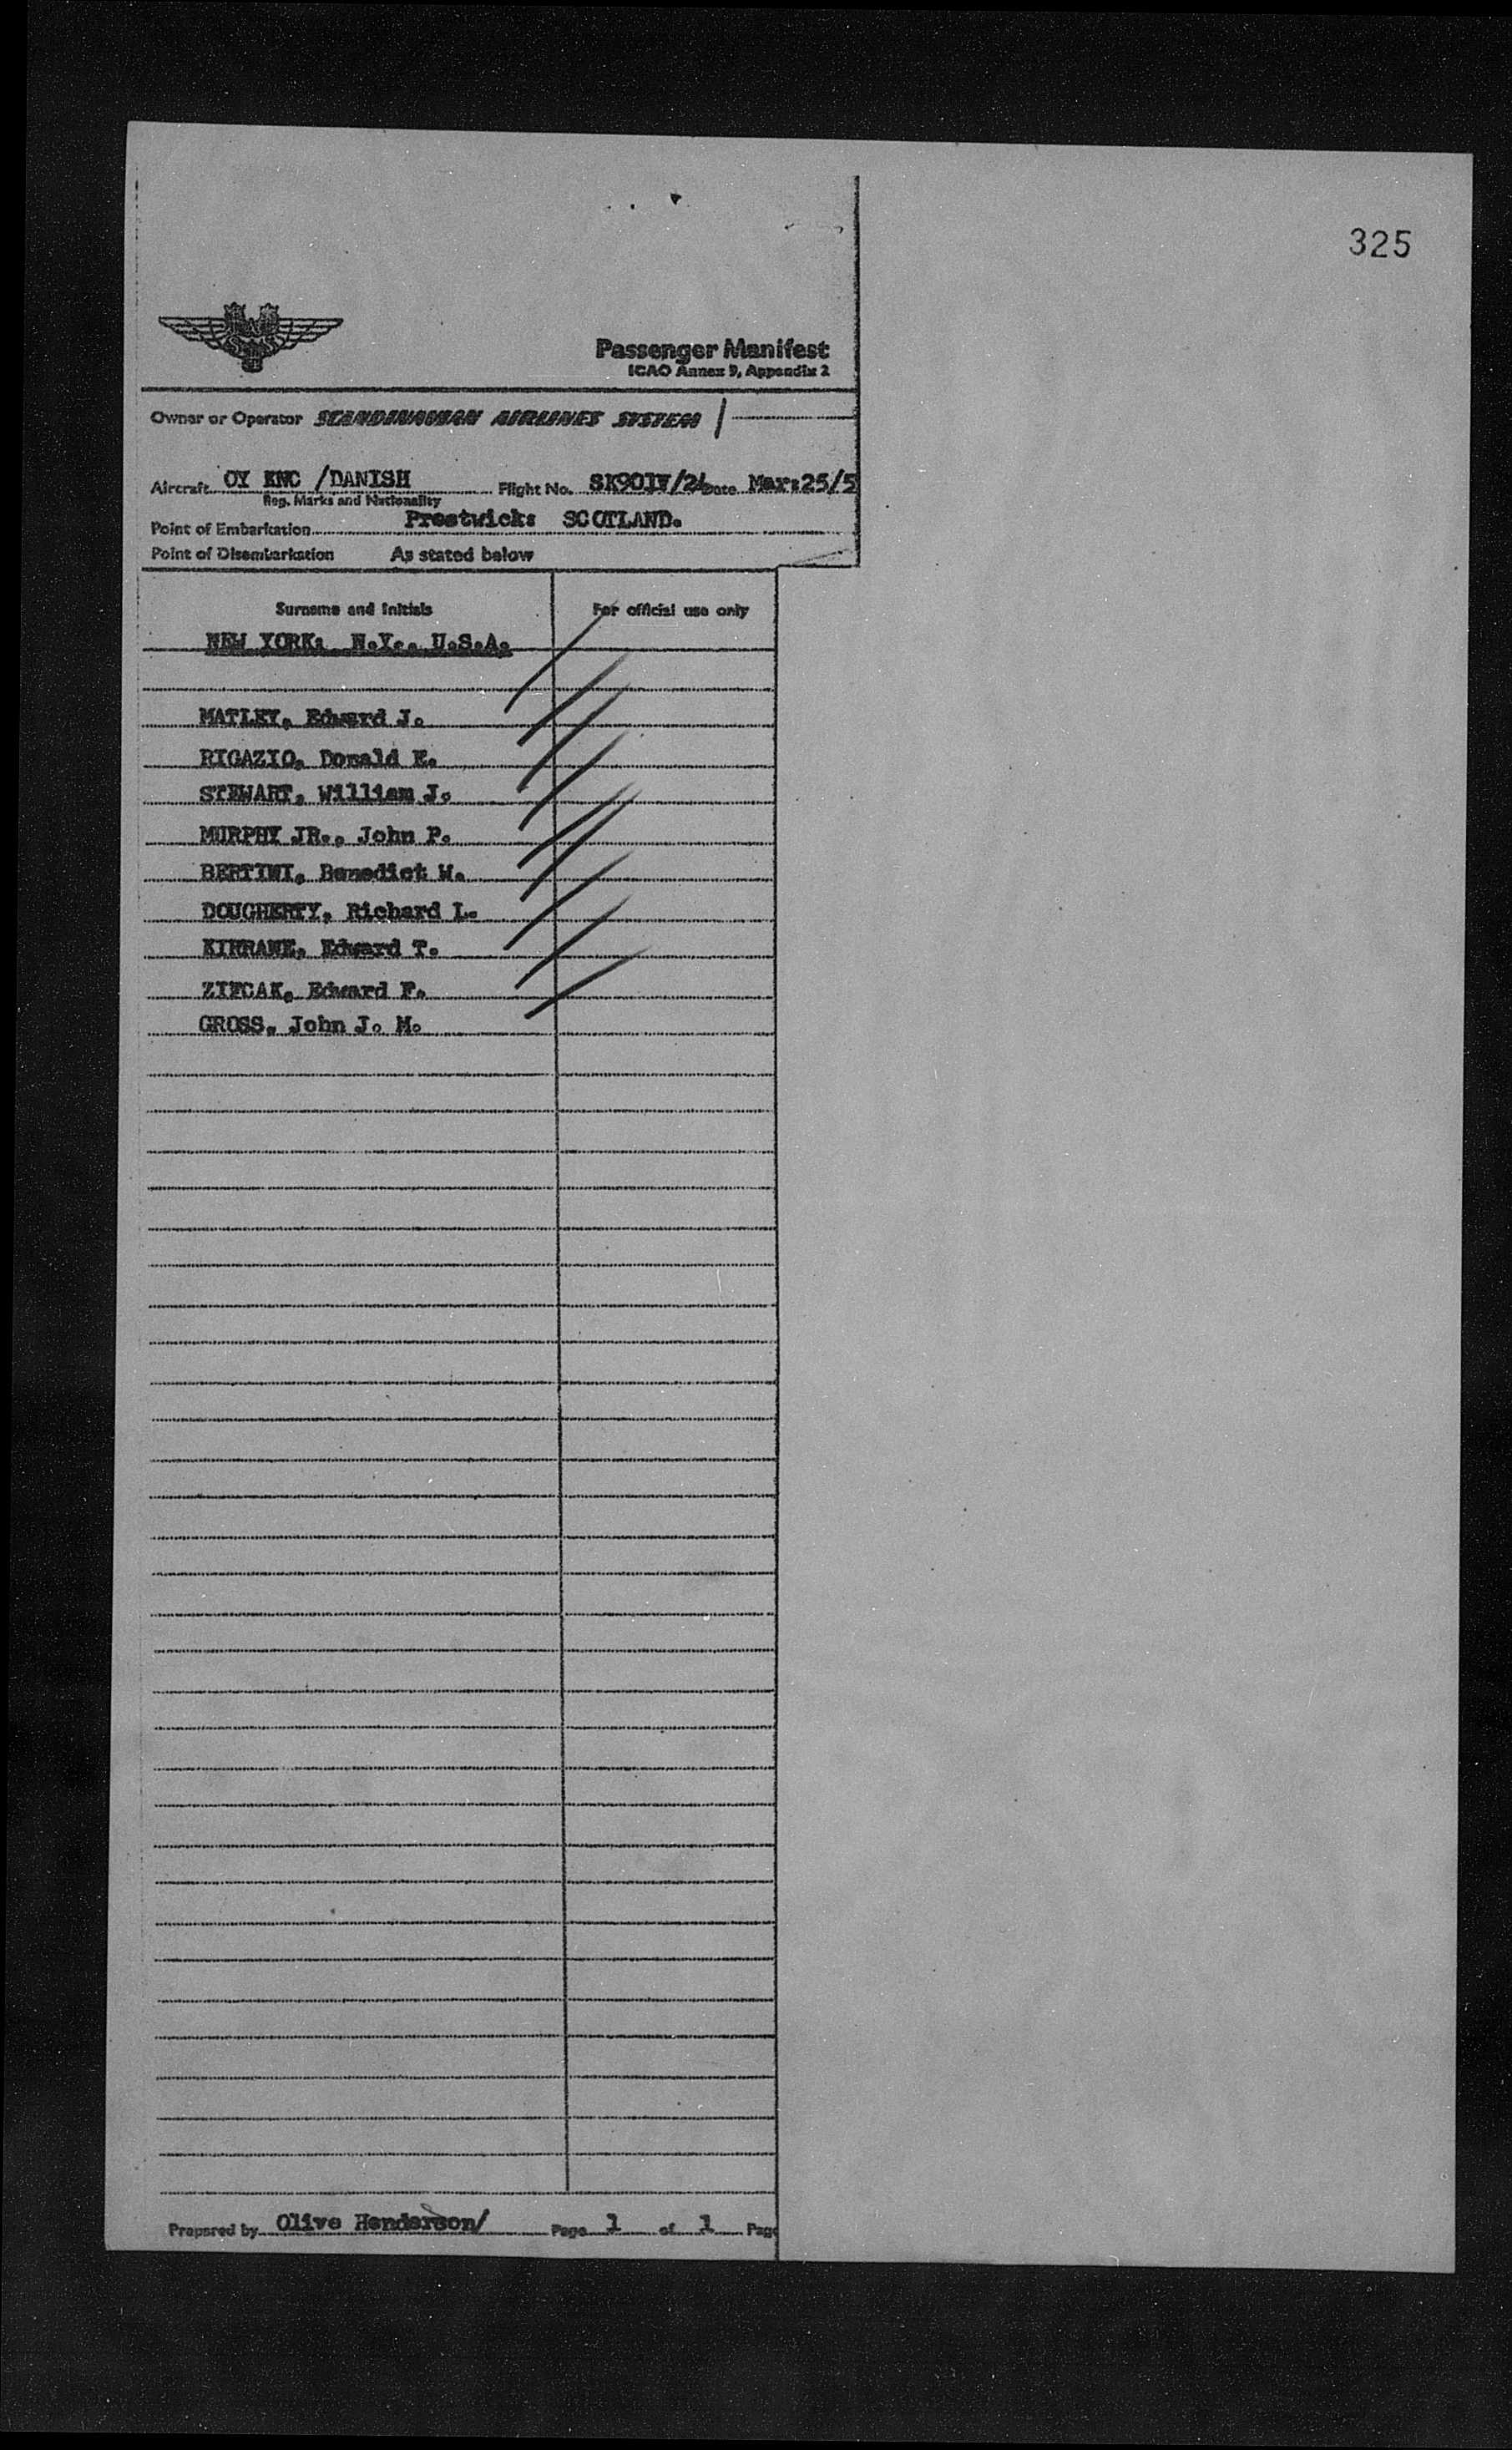 325
SAS
Passenger Manifest
ICAO Annex 9, Appendix 2
Owner or Operator SCANDINAVIAN AIRLINES SYSTEM
Aircraft OY KNC /DANISH Flight No. SK901W/24 Date Mar:25/5
Reg. Marks and Nationality
Point of Embarkation Prestwick: SCOTLAND.
Point of Disembarkation As stated below
Surname and Initials For official use only
NEW YORK: N.Y., U.S.A.
MATLEY, Edward J.
RIGAZIO, Donald E.
STEWART, William J.
MURPHY JR., John P.
BERTINI, Benedict W.
DOUGHERTY, Richard L.
KIRRANE, Edward T.
ZIFCAK, Edward F.
GROSS, John J. M.
Prepared by Olive Henderson/ Page 1 of 1 Pag